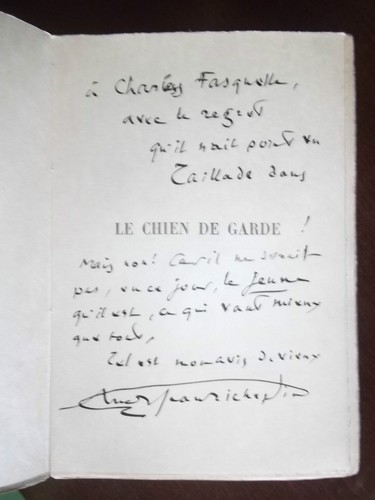 à Charles Fasquelle,
avec le regret
qu'il n'ait point vu
Taillade dans
LE CHIEN DE GARDE !
Mais non! Car il ne serait
pas, en ce jour, le jeune
qu'il est, ce qui vaut mieux
que tout,
Tel est mon avis de vieux
Jean Richepin